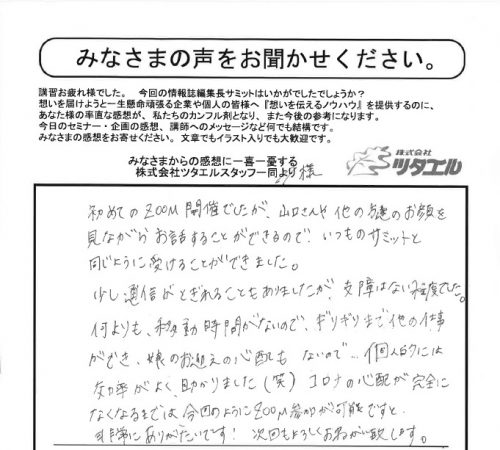 みなさまの声をお聞かせください。
講習お疲れ様でした。 今回の情報誌編集長サミットはいかがでしたでしょうか？
想いを届けようと一生懸命頑張る企業や個人の皆様へ『想いを伝えるノウハウ』を提供するのに、
あなた様の率直な感想が、私たちのカンフル剤となり、また今後の参考になります。
今日のセミナー・企画の感想、講師へのメッセージなど何でも結構です。
みなさまの感想をお寄せください。文章でもイラスト入りでも大歓迎です。
みなさまからの感想に一喜一憂する
株式会社ツタエルスタッフ一同より
様
株式会社
ツタエル
初めてのZOOM開催でしたが、山口さんや他の方達のお顔を
見ながらお話することができるので、いつものサミットと
同じように受けることができました。
少し通信がとぎれることもありましたが、支障はない程度でした。
何よりも、移動時間がないので、ギリギリまで他の仕事
ができ、娘のお迎えの心配もないので… 個人的には
効率がよく、助かりました（笑）コロナの心配が完全に
なくなるまでは、今回のようにZOOM参加が可能ですと、
非常にありがたいです！ 次回もよろしくお願い致します。